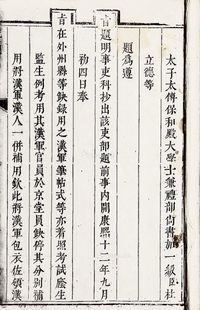 太子太傅保和殿大學士兼禮部尚書加一級臣杜
立德等
題爲遵
旨題明事吏科抄出該吏部題前事內開康熙十二年九月
初四日奉
旨在外州縣等缺錄用之漢軍筆帖式等亦着照考試廕生
監生例考用其漢軍官員於京堂員缺停其分別補
用將漢軍漢人一併補用欽此將漢軍包衣佐領漢